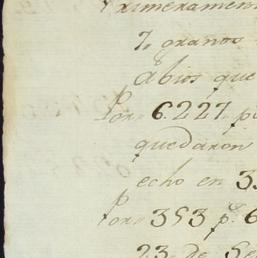 Primeramen
7„ granos
abios que
Por„ 6„227„ p
quedaron
echo en 3
Por„ 353 p.s 6
23„ de Se